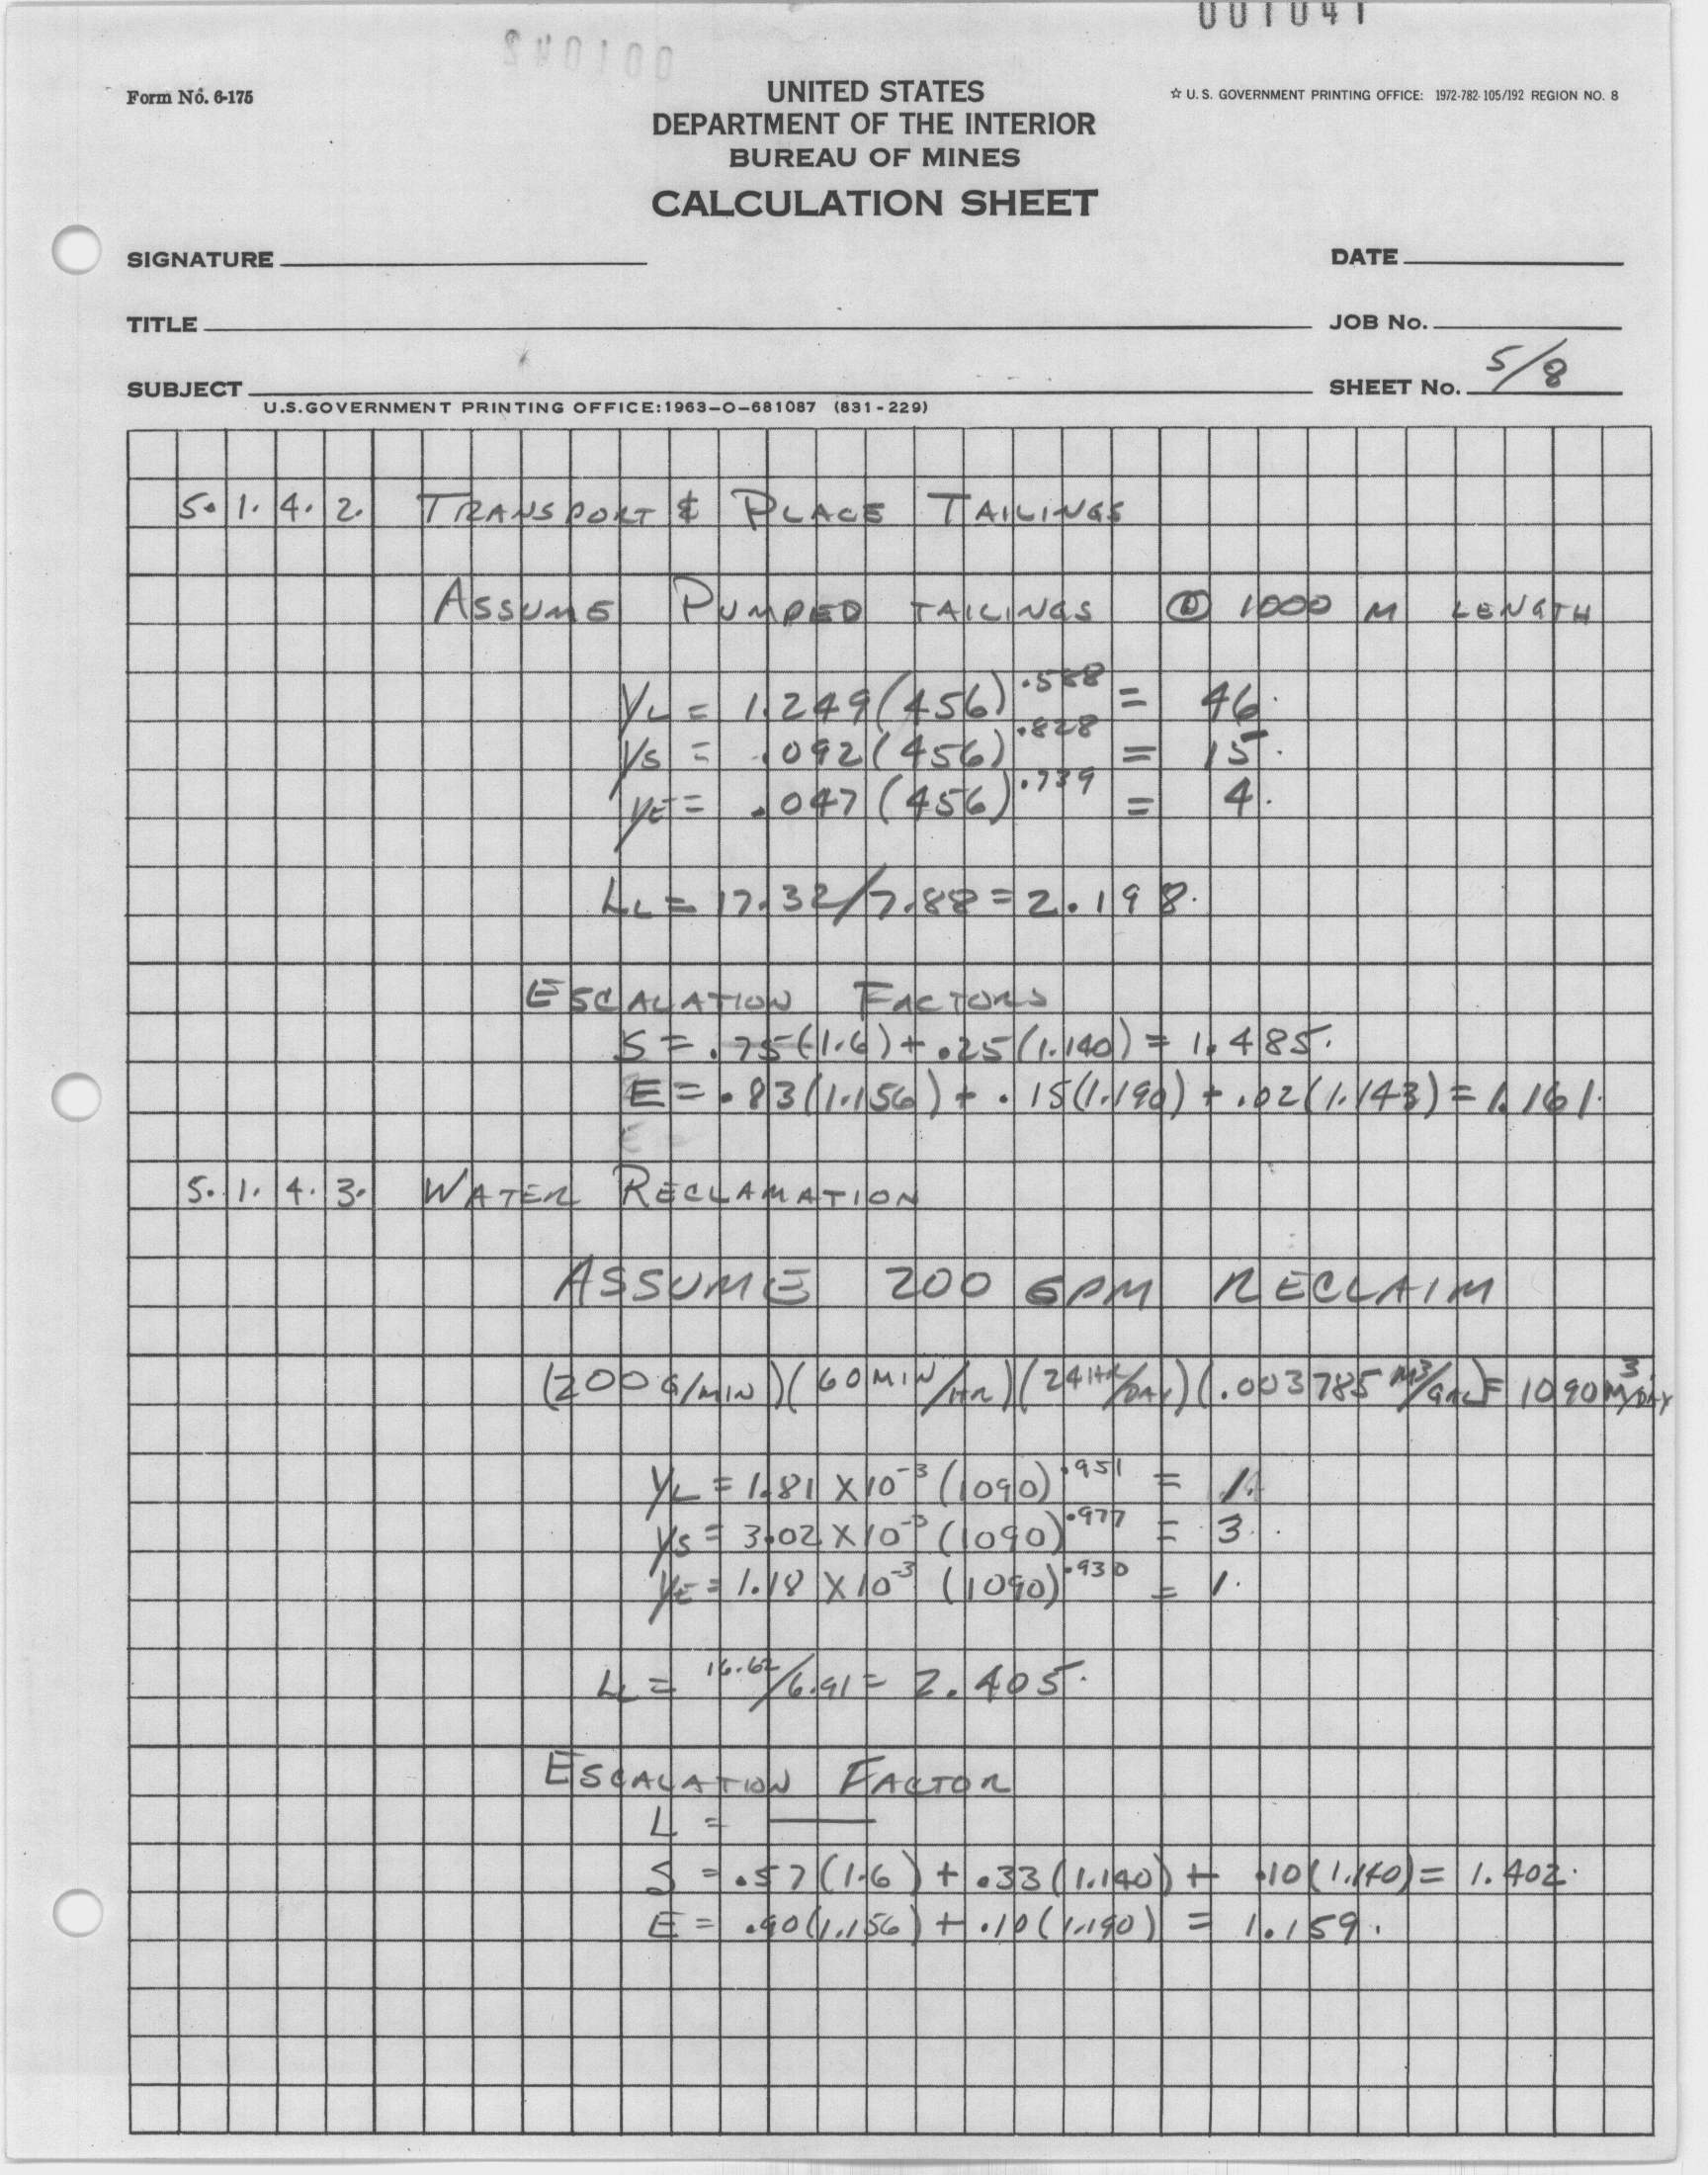 001041
001042
Form No. 6-175
UNITED STATES
DEPARTMENT OF THE INTERIOR
BUREAU OF MINES
CALCULATION SHEET
☆ U. S. GOVERNMENT PRINTING OFFICE: 1972-782-105/192 REGION NO. 8
SIGNATURE
DATE
TITLE
JOB No.
SUBJECT
SHEET No. 5/8
U.S.GOVERNMENT PRINTING OFFICE:1963-O-681087 (831-229)
5.1.4.2. TRANSPORT & PLACE TAILINGS
ASSUME PUMPED TAILINGS @ 1000 M LENGTH
YL = 1.249(456)^.588 = 46.
YS = .092(456)^.828 = 15.
YE = .047(456)^.739 = 4.
LL = 17.32/7.88 = 2.198.
ESCALATION FACTORS
S = .75(1.6) + .25(1.140) = 1.485.
E = .83(1.156) + .15(1.190) + .02(1.143) = 1.161.
5.1.4.3. WATER RECLAMATION
ASSUME 200 GPM RECLAIM
(200 G/MIN)(60 MIN/HR)(24 HR/DAY)(.003785 M³/GAL) = 1090 M³/DAY
YL = 1.81 X 10⁻³ (1090)^.951 = 1.
YS = 3.02 X 10⁻³ (1090)^.977 = 3.
YE = 1.18 X 10⁻³ (1090)^.930 = 1.
LL = 16.62/6.91 = 2.405.
ESCALATION FACTOR
L = ——
S = .57(1.6) + .33(1.140) + .10(1.140) = 1.402.
E = .90(1.156) + .10(1.190) = 1.159.